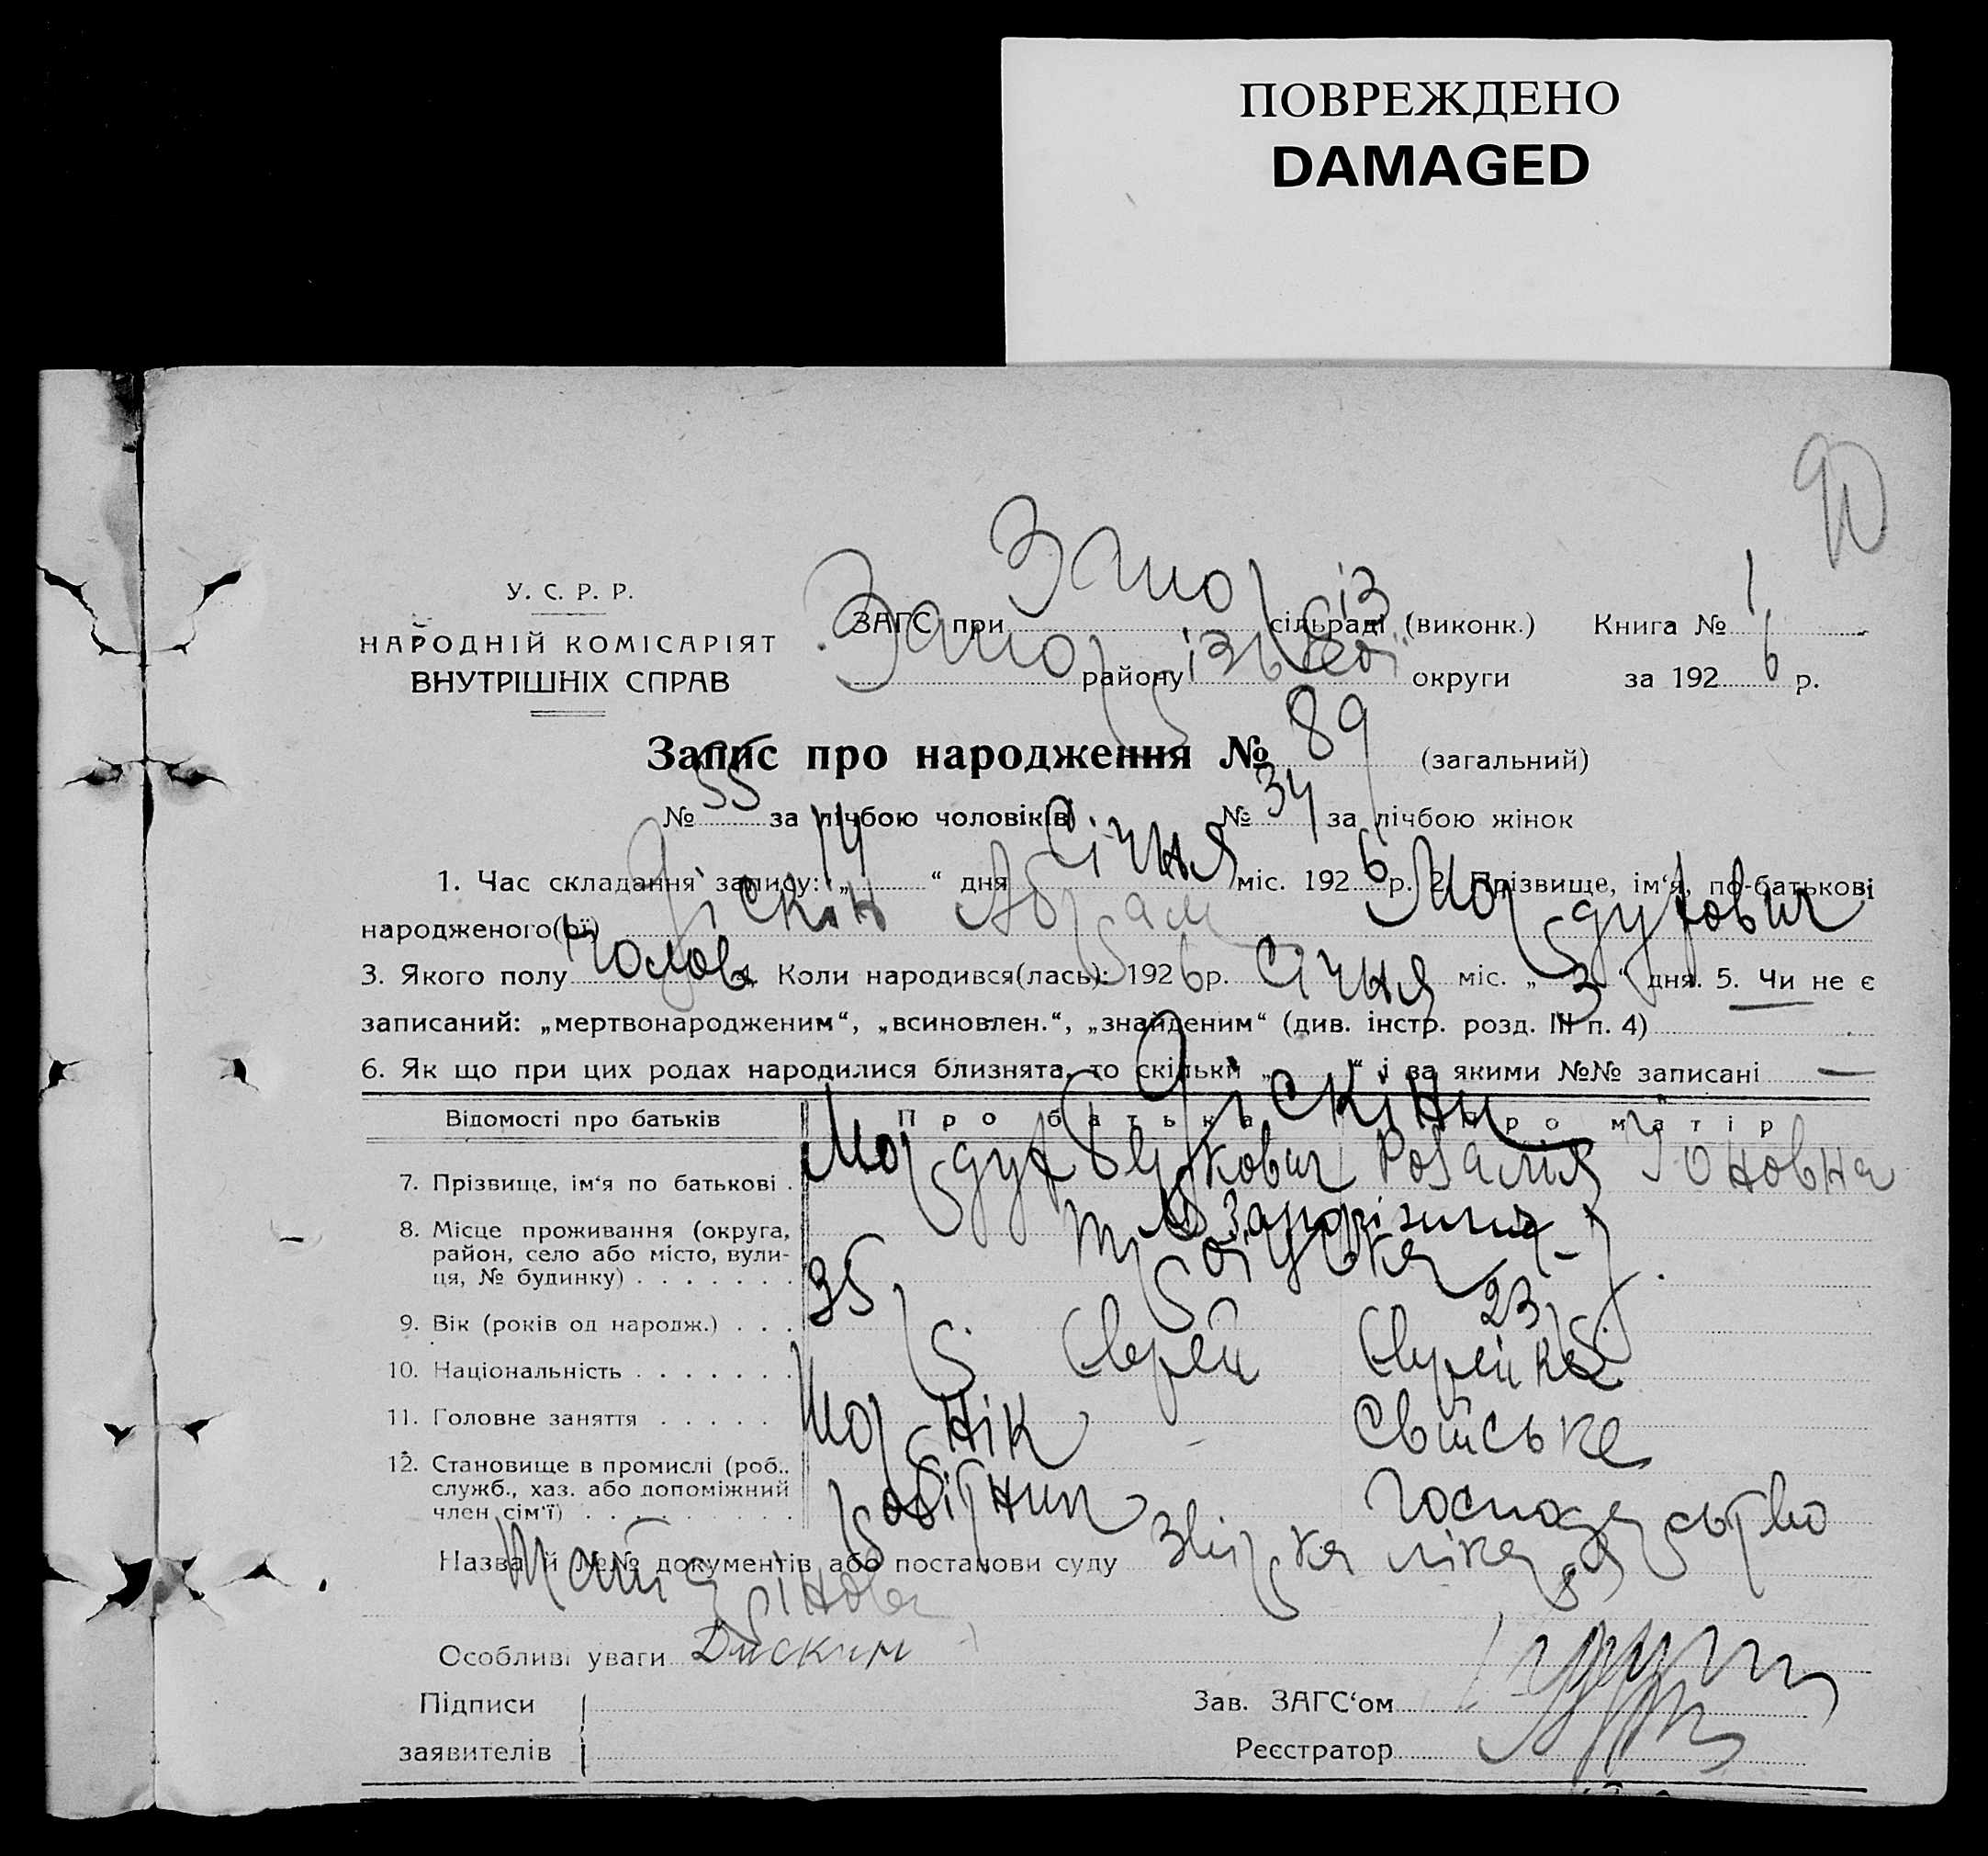 ПОВРЕЖДЕНО
DAMAGED
90
У. С. Р. Р.
НАРОДНІЙ КОМІСАРІЯТ
ВНУТРІШНІХ СПРАВ
ЗАГС при Запоріз сільраді (виконк.) Книга № 1
Запорізької району округи за 1926 р.
Запис про народження № 89 (загальний)
№ 55 за лічбою чоловіків № 34 за лічбою жінок
1. Час складання запису: „14“ дня Січня міс. 1926 р. 2. Прізвище, ім‘я, по-батькові
народженого(ої) Діскін Абрам Мордухович
3. Якого полу Чолов 4. Коли народився(лась): 1926 р. Січня міс. „3“ дня. 5. Чи не є
записаний: „мертвонародженим“, „всиновлен.“, „знайденим“ (див. інстр. розд. III п. 4)
6. Як що при цих родах народилися близнята, то скільки „ “ і за якими №№ записані —
Відомості про батьків Про батька Про матір
Діскіни
7. Прізвище, ім‘я по батькові . Мордух Беркович Розалия Йоновна
8. Місце проживання (округа, район, село або місто, вулиця, № будинку) . . . . . . . М Запоріжжя
9. Вік (років од народж.) . . . 35 р. 23 р.
10. Національність . . . . . . . Єврей Єврейка
11. Головне заняття . . . . . Шорнік Свійське
12. Становище в промислі (роб., служб., хаз. або допоміжний член сім‘ї) . . . . . . . . . робітник господарство
Назва й №№ документів або постанови суду Звірка лікаря
Особливі уваги Дискин
Підписи
заявителів
Зав. ЗАГС‘ом
Реєстратор